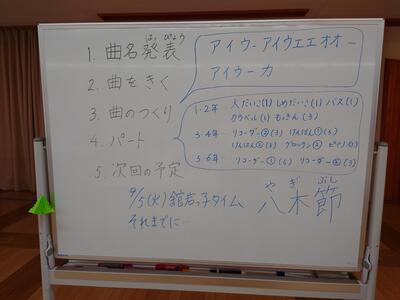 1. 曲名発表
はっぴょう
2. 曲をきく
3. 曲のつくり
4. パート
5. 次回の予定
アイウーアイウエエオオー
アイウーカ
1・2年 大だいこ(1) しめだいこ(1) バス(1)
カウベル(1) もっきん(3)
3・4年 リコーダー②(3) けんばん①(3)
けんばん②(3) グロッケン(2) ピアノ(1)
5・6年 リコーダー①(6) リコーダー②(3)
9/5(火) 舘岩っ子タイム
それまでに…
やぎぶし
八木節